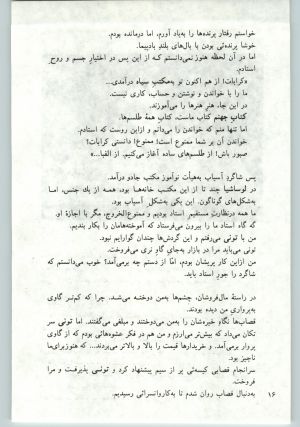 خواستم رفتار پرنده‌ها را به‌یاد آورم، اما درمانده بودم.
خوشا پرنده‌ئی بودن با بال‌های بلند بادپیما.
اما در آن لحظه هنوز نمی‌دانستم که از این پس در اختیار جسم و روح استادم.
«کرابات! از هم اکنون تو به‌مکتب سیاه درآمدی...
ما را با خواندن و نوشتن و حساب، کاری نیست.
در این جا، هنرِ هنرها را می‌آموزند.
کتاب جهنم کتاب ماست، کتاب همهٔ طلسم‌ها.
اما تنها منم که خواندن را می‌دانم و ازاین روست که استادم.
خواندن آن بر شما ممنوع است! ممنوع! دانستی کرابات؟
صبور باش! از طلسم‌های ساده آغاز می‌کنیم. از الفبا...»
پس شاگرد آسیاب به‌هیأت نوآموز مکتب جادو درآمد.
در لوساشیا چند تا از این مکتب خانه‌ها بود، همه از یك جنس، اما به‌شکل‌های گوناگون. این یکی به‌شکل آسیاب بود.
ما همه درنظارت مستقیم استاد بودیم و ممنوع‌الخروج، مگر با اجازهٔ او.
گه گاه استاد ما را بیرون می‌فرستاد که آموخته‌هامان را بکار بندیم.
من با تونی می‌رفتم و این گردش‌ها چندان گوارایم نبود.
تونی می‌باید مرا در بازار به‌جای گاو نری می‌فروخت.
من ازاین کار پریشان بودم، امّا از دستم چه برمی‌آمد؟ خوب می‌دانستم که شاگرد را جور استاد باید.
در راستهٔ مال‌فروشان، چشم‌ها به‌من دوخته می‌شد. چرا که کمتر گاوی به‌پرواری من دیده بودند.
قصاب‌ها نگاهِ خیره‌شان را به‌من می‌دوختند و مبلغی می‌گفتند. اما تونی سر تکان می‌داد که بیش‌تر می‌ارزم و من هم در فکر عشوه‌هائی بودم که از گاوی پروار برمی‌آمد. و خریدارها قیمت را بالا و بالاتر می‌بردند... که هنوزبرای‌ما ناچیز بود.
سرانجام قصابی کیسه‌ئی پر از سیم پیشنهاد کرد و تونسی پذیرفت و مرا فروخت.
به‌دنبال قصاب روان شدم تا به‌کاروانسرائی رسیدیم.
۱۶